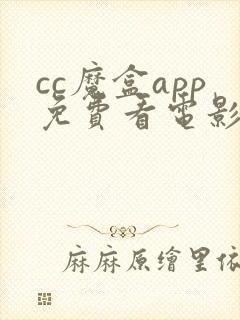 cc魔盒app
免費看電影
麻麻原繪里依